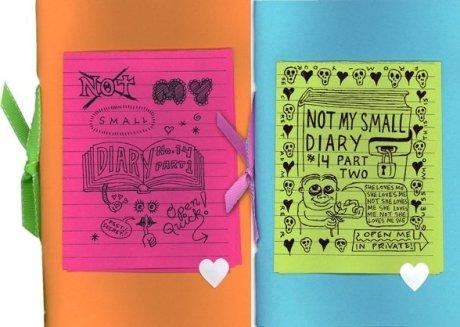 NOT MY
SMALL
DIARY
No. 14
PART 1
Open
Quick!
NOT MY SMALL
DIARY
#14 PART
TWO
SHE LOVES ME
SHE LOVES ME
NOT SHE LOVES
ME SHE LOVES
ME NOT SHE
LOVES ME SHE
OPEN ME
IN PRIVATE!